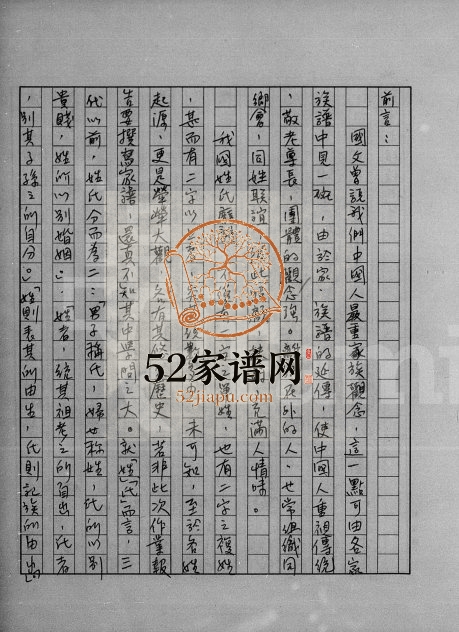 前言：
國父曾說我們中國人最重家族觀念，這一點可由各家
族譜中見一斑，由於家、族譜的延傳，使中國人重祖傳統
，敬老尊長，團體的觀念強。 在外的人，也常組織同
鄉會，同姓聯誼 充滿人情味。
我國姓氏 單姓，也有二字之複姓
，甚而有二字以 未可知，至於各姓
起源，更是瑩瑩大觀，各有其 歷史，若非此次作業報
告要撰寫家譜，還真不知其中學問之大。就「姓」「氏」而言，三
代以前，姓氏分而為二：「男子稱氏，婦女稱姓，氏所以別
貴賤，姓所以別婚姻」。「姓者，統其祖考之所自出，氏者
，別其子孫之所自分。」「姓則表其所由生，氏則記族所由出」
52家谱网
52jiapu.com